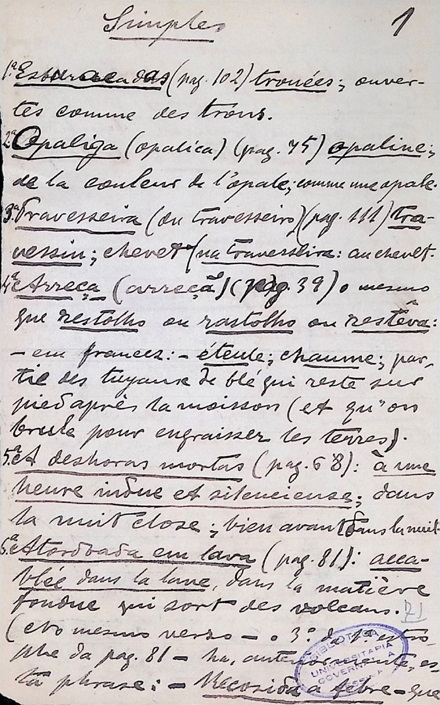 Simples 1
1ª Esburacadas (pag. 102) trouées; ouver-
tes comme des trous.
2ª Opaliga (opalica) (pag. 75) opaline;
de la couleur de l'opale; comme une opale.
3ª Travesseira (ou travesseiro) (pag. 111) tra-
versin; chevet (na travesseira: au chevet.
4ª Arreça (arreçã) (pag. 39) o mesmo
que restolho ou rastolho ou restêva:
- em francez: - éteule; chaume; par-
tie des tuyaux de blé qui reste sur
pied après la moisson (et qu'on
brule pour engraisser les terres).
5ª A deshoras mortas (pag. 68): à une
heure indue et silencieuse; dans
la nuit close; bien avant dans la nuit
6ª Atordoada em lava (pag. 81): acca-
blée dans la lave, dans la matière
fondue qui sort des volcans.
(No mesmo verso - o 3º da 1ª estro-
phe da pag. 81 - ha, anteriormente, es-
ta phrase: - Recosida a febre - que
BIBLIOTECA
UNIVERSITARIA